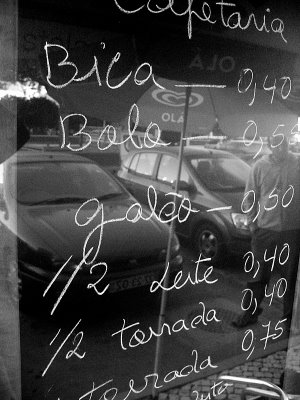 Cafetaria
Bica — 0,40
OLÁ
Bolo — 0,55
OLÁ
galão — 0,50
1/2 leite 0,40
1/2 torrada 0,40
torrada 0,75